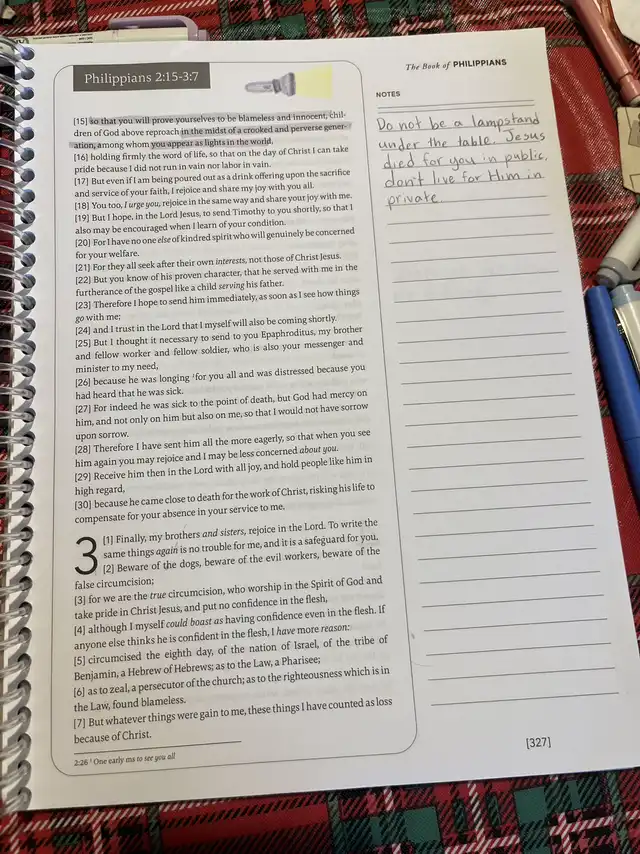 Philippians 2:15-3:7
[15] so that you will prove yourselves to be blameless and innocent, chil-
dren of God above reproach in the midst of a crooked and perverse gener-
ation, among whom you appear as lights in the world,
[16] holding firmly the word of life, so that on the day of Christ I can take
pride because I did not run in vain nor labor in vain.
[17] But even if I am being poured out as a drink offering upon the sacrifice
and service of your faith, I rejoice and share my joy with you all.
[18] You too, I urge you, rejoice in the same way and share your joy with me.
[19] But I hope, in the Lord Jesus, to send Timothy to you shortly, so that I
also may be encouraged when I learn of your condition.
[20] For I have no one else of kindred spirit who will genuinely be concerned
for your welfare.
[21] For they all seek after their own interests, not those of Christ Jesus.
[22] But you know of his proven character, that he served with me in the
furtherance of the gospel like a child serving his father.
[23] Therefore I hope to send him immediately, as soon as I see how things
go with me;
[24] and I trust in the Lord that I myself will also be coming shortly.
[25] But I thought it necessary to send to you Epaphroditus, my brother
and fellow worker and fellow soldier, who is also your messenger and
minister to my need,
[26] because he was longing ¹for you all and was distressed because you
had heard that he was sick.
[27] For indeed he was sick to the point of death, but God had mercy on
him, and not only on him but also on me, so that I would not have sorrow
upon sorrow.
[28] Therefore I have sent him all the more eagerly, so that when you see
him again you may rejoice and I may be less concerned about you.
[29] Receive him then in the Lord with all joy, and hold people like him in
high regard,
[30] because he came close to death for the work of Christ, risking his life to
compensate for your absence in your service to me.
3 [1] Finally, my brothers and sisters, rejoice in the Lord. To write the
same things again is no trouble for me, and it is a safeguard for you.
[2] Beware of the dogs, beware of the evil workers, beware of the
false circumcision;
[3] for we are the true circumcision, who worship in the Spirit of God and
take pride in Christ Jesus, and put no confidence in the flesh,
[4] although I myself could boast as having confidence even in the flesh. If
anyone else thinks he is confident in the flesh, I have more reason:
[5] circumcised the eighth day, of the nation of Israel, of the tribe of
Benjamin, a Hebrew of Hebrews; as to the Law, a Pharisee;
[6] as to zeal, a persecutor of the church; as to the righteousness which is in
the Law, found blameless.
[7] But whatever things were gain to me, these things I have counted as loss
because of Christ.
2:26 ¹ One early ms to see you all
The Book of PHILIPPIANS
NOTES
Do not be a lampstand
under the table. Jesus
died for you in public,
don't live for Him in
private.
[327]